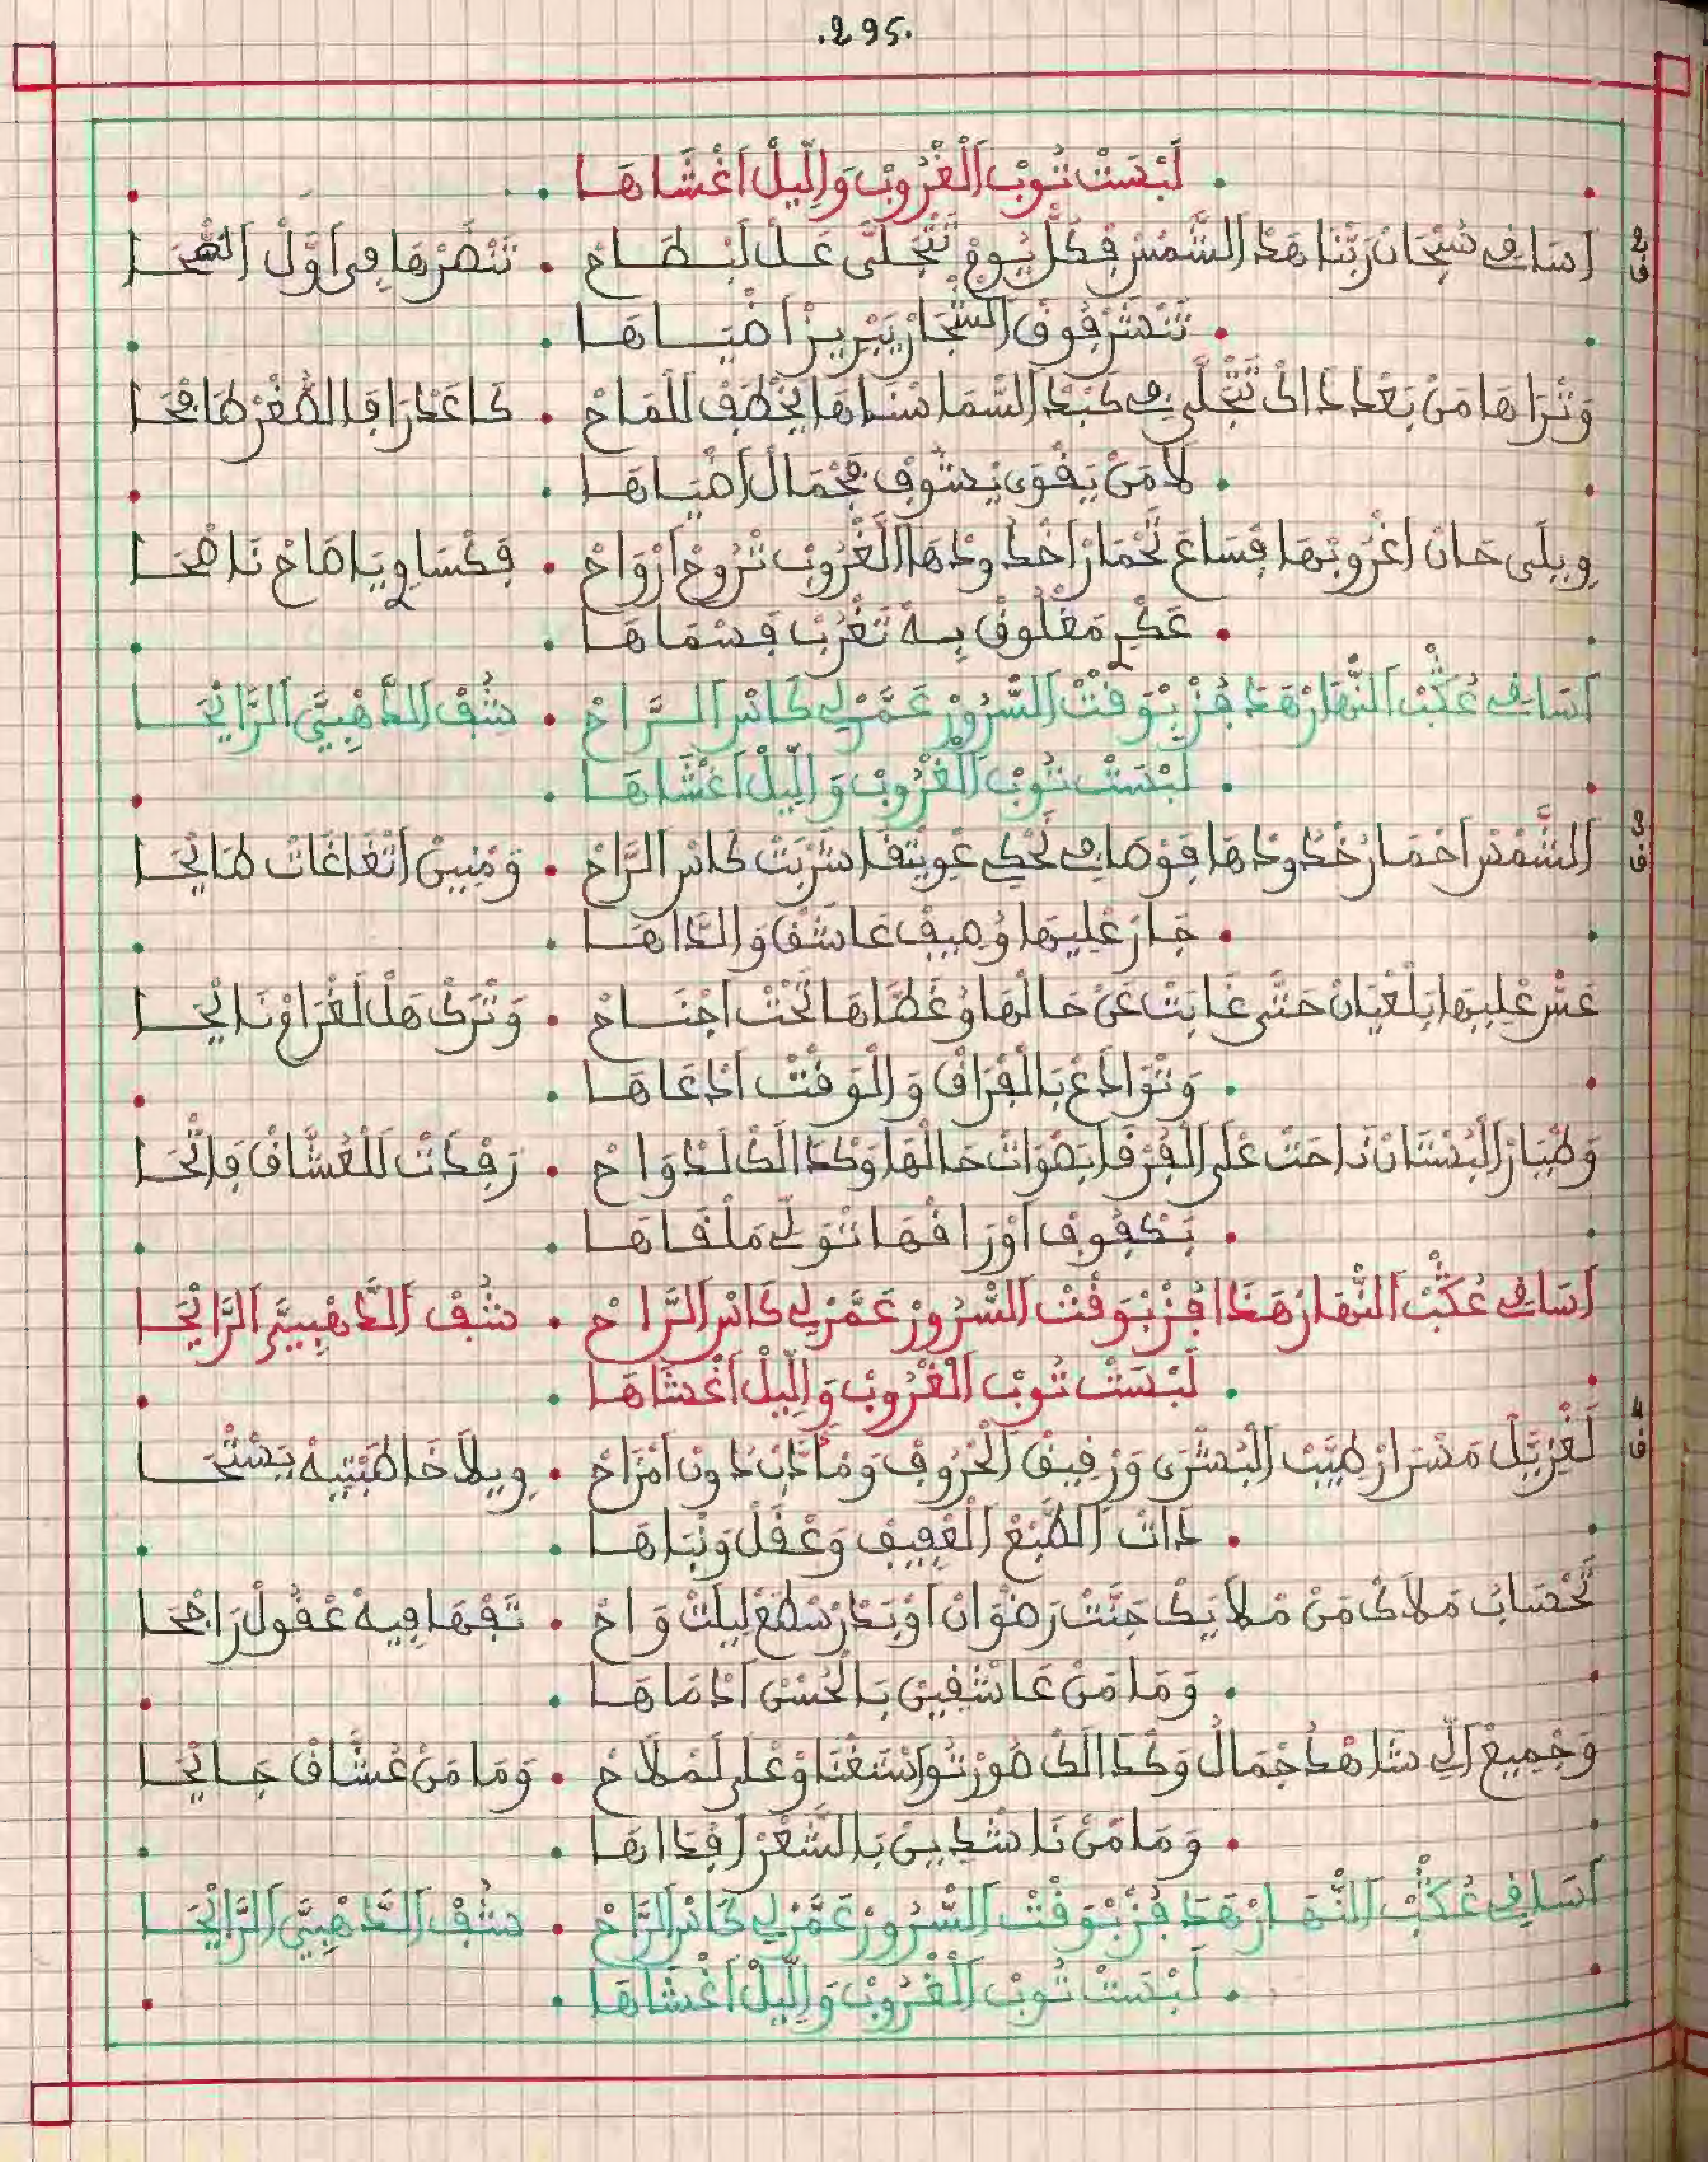 .295.
لَبْسَتْ تُوبْ اَلْغْرُوبْ وَاللِّيلْ اَغْشَاهَا
2 ق اَسَاقِي سُبْحَانْ رَبّْنَا هَدْ الشَّمْسْ فِكُلّْ يُومْ تَتْجَلَّى عَلْ لَبْطَاحْ . تَنْضَرْهَا فِي اَوَّلْ الضّْحَا
تَنْشَرْ فُوقْ الشّْجَارْ يَبْرِيزْ اَضْيَاهَا
وَتْرَاهَا مَنْ بَعْدْ دَاكْ تَتْجَلَّى فِي كَبْدْ السَّمَا سْنَاهَا يَخْطَفْ اللّْمَاحْ . كَاعَدْرَا فَالصّْغَرْ طَافْحَا
لَا مَنْ يَقْوَى يْشُوفْ فَجْمَالْ اَضْيَاهَا
وِيلَى حَانْ اَغْرُوبْهَا فْسَاعْ تَحْمَارْ اَخْدُودْهَا الْغْرُوبْ تْرُوحْ اَرْوَاحْ . فَكْسَاوِي يَاصَاحْ نَاصْحَا
عَكْرِي مَغْلُوقْ بِهْ تَغْرُبْ فَسْمَاهَا
اَسَاقِي عُكْبْ النّْهَارْ هَدَ فُزْ بْوَقْتْ السُّرُورْ عَمَّرْ لِي كَاسْ الرَّاحْ . شُفْ الدَّهْبِيَّ الرَّايْحَا
لَبْسَتْ تُوبْ اَلْغْرُوبْ وَاللِّيلْ اَغْشَاهَا
3 ق الشَّمْسْ اَحْمَارْ خْدُودْهَا فَوْصَافِي تَحْكِي عْوِيتْقَا شَرْبَتْ كَاسْ الرَّاحْ . وَمْنِينْ اَتْغَاغَاتْ طَايْحَا
جَارْ عْلِيهَا وُصِيفْ عَاشَقْ وَالدَّاهَا
عَسّْ عْلِيهَا بَلْعْيَانْ حَتَّى غَابَتْ عَنْ حَالْهَا وْغَطَّاهَا تَحْتْ اَجْنَاحْ . وَتْرَكْ هَلْ لَغْرَاوْ نَايْحَا
وَتْوَادَعْ بَالْفْرَاقْ وَالْوَقْتْ اَدْعَاهَا
وَطْيَارْ الْبُسْتَانْ نَاحَتْ عْلَى الْفُرْقَا بَصْوَاتْ حَالْهَا وَكْدَالَكْ لَدْوَاحْ . رَفْدَاتْ لَلْعُشَّاقْ فَاتْحَا
بَكْفُوفْ اَوْرَاقْهَا تْوَلِّي مَلْقَاهَا
اَسَاقِي عُكْبْ النّْهَارْ هَدَا فُزْ بْوَقْتْ السُّرُورْ عَمَّرْ لِي كَاسْ الرَّاحْ . شُفْ الدَّهْبِيَّ الرَّايْحَا
لَبْسَتْ تُوبْ اَلْغْرُوبْ وَاللِّيلْ اَغْشَاهَا
4 ق لَغْزِيَّلْ مَسْرَارْ طَيَّبْ الْبُشْرَى وَرْقِيقْ الْحْرُوفْ وَمْأَدَّبْ دُونْ اَمْزَاحْ . وِيلَا خَاطَبْتِيهْ يَسْتْحَا
دَاتْ الطَّبْعْ الْعْفِيفْ وَعْقَلْ وَنْبَاهَا
تَحْسَابُ مَلَاكْ مَنْ مْلَايَكْ جَنَّتْ رَضْوَانْ اَوْ بَدْرْ سْطَعْ لِيلَتْ وَاحْ . تَفْهَا فِيهْ عْقُولْ رَاجْحَا
وَمَا مَنْ عَاشْقِينْ بَالْحُسْنْ اَدْمَاهَا
وَجْمِيعْ اَلِّي شَاهْدْ جْمَالُ وَكْدَالَكْ صُورْتُو اَسْتَغْنَاوْ عْلَى لَمْلَاحْ . وَمَا مَنْ عُشَّاقْ جَايْحَا
وَمَا مَنْ نَاشْدِينْ بَالشّْعَرْ اَفْدَاهَا
اَسَاقِي عُكْبْ النّْهَارْ هَدَ فُزْ بْوَقْتْ السُّرُورْ عَمَّرْ لِي كَاسْ الرَّاحْ . شُفْ الدَّهْبِيَّ الرَّايْحَا
لَبْسَتْ تُوبْ اَلْغْرُوبْ وَاللِّيلْ اَغْشَاهَا